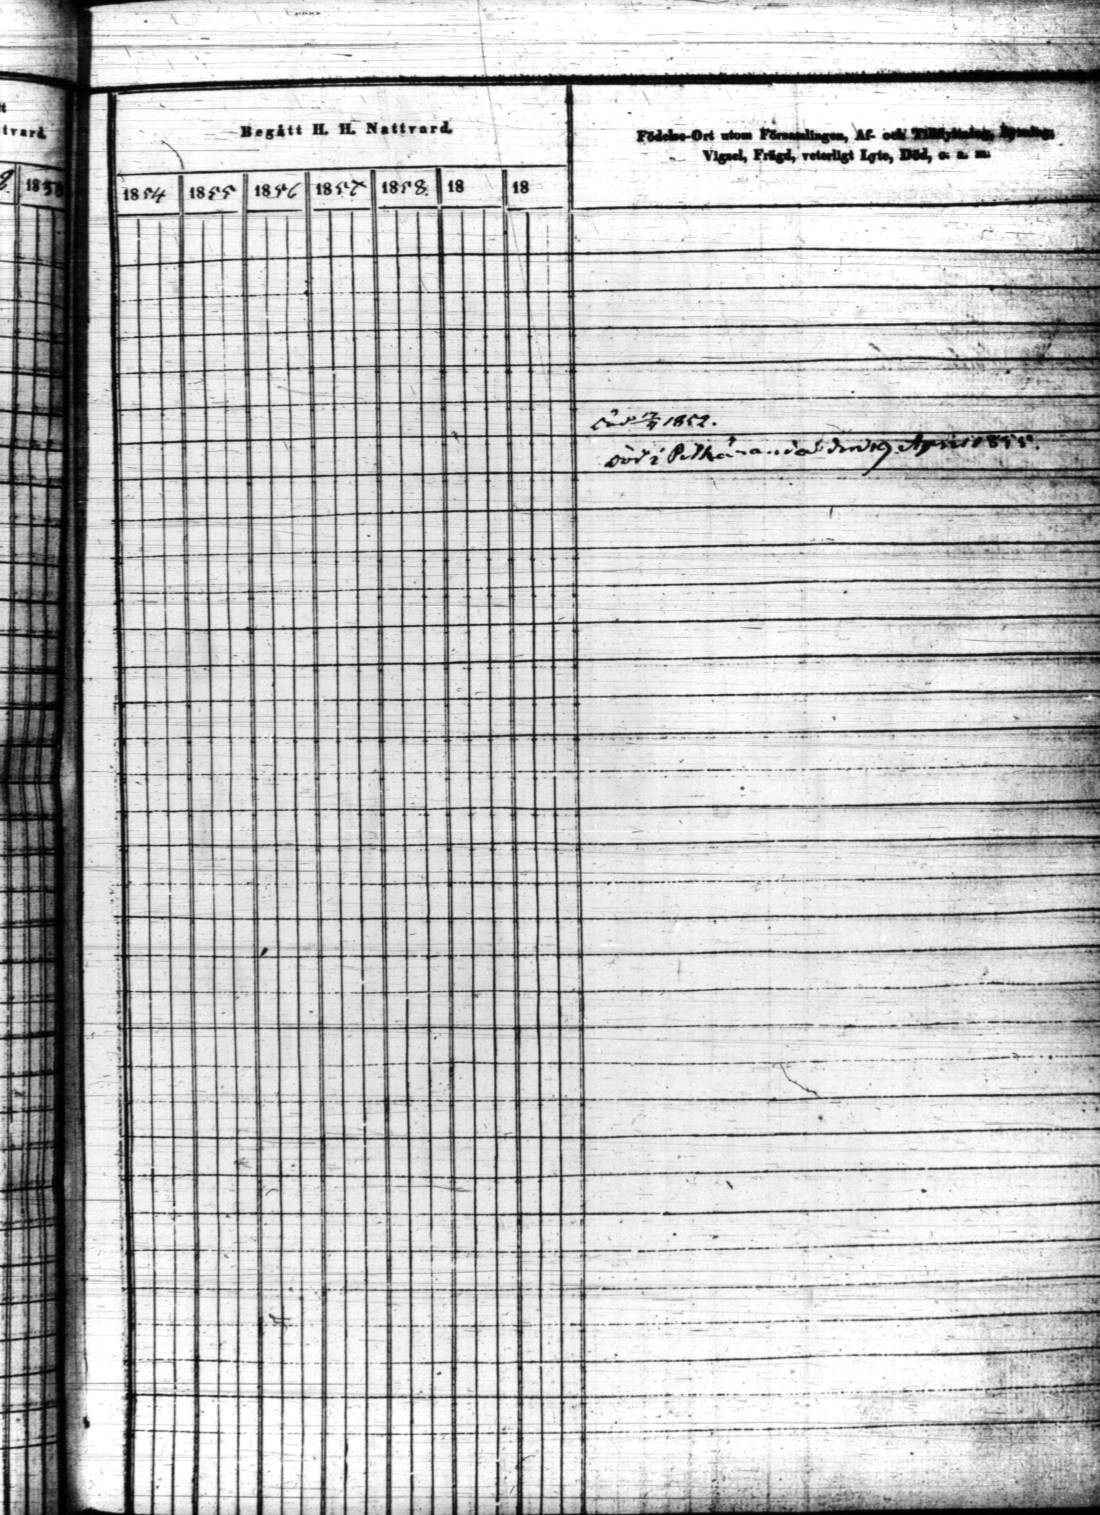 tvard
18
Begått H. H. Nattvard.
Födelse-Ort utom Församlingen, Af- och Tillflyttning, Lysning,
Vigsel, Frägd, veterligt Lyte, Död, o. s. m.
1854 1855 1856 1857 1858. 18 18
död 1852.
död i Pitkäranda den 19 April 1855.